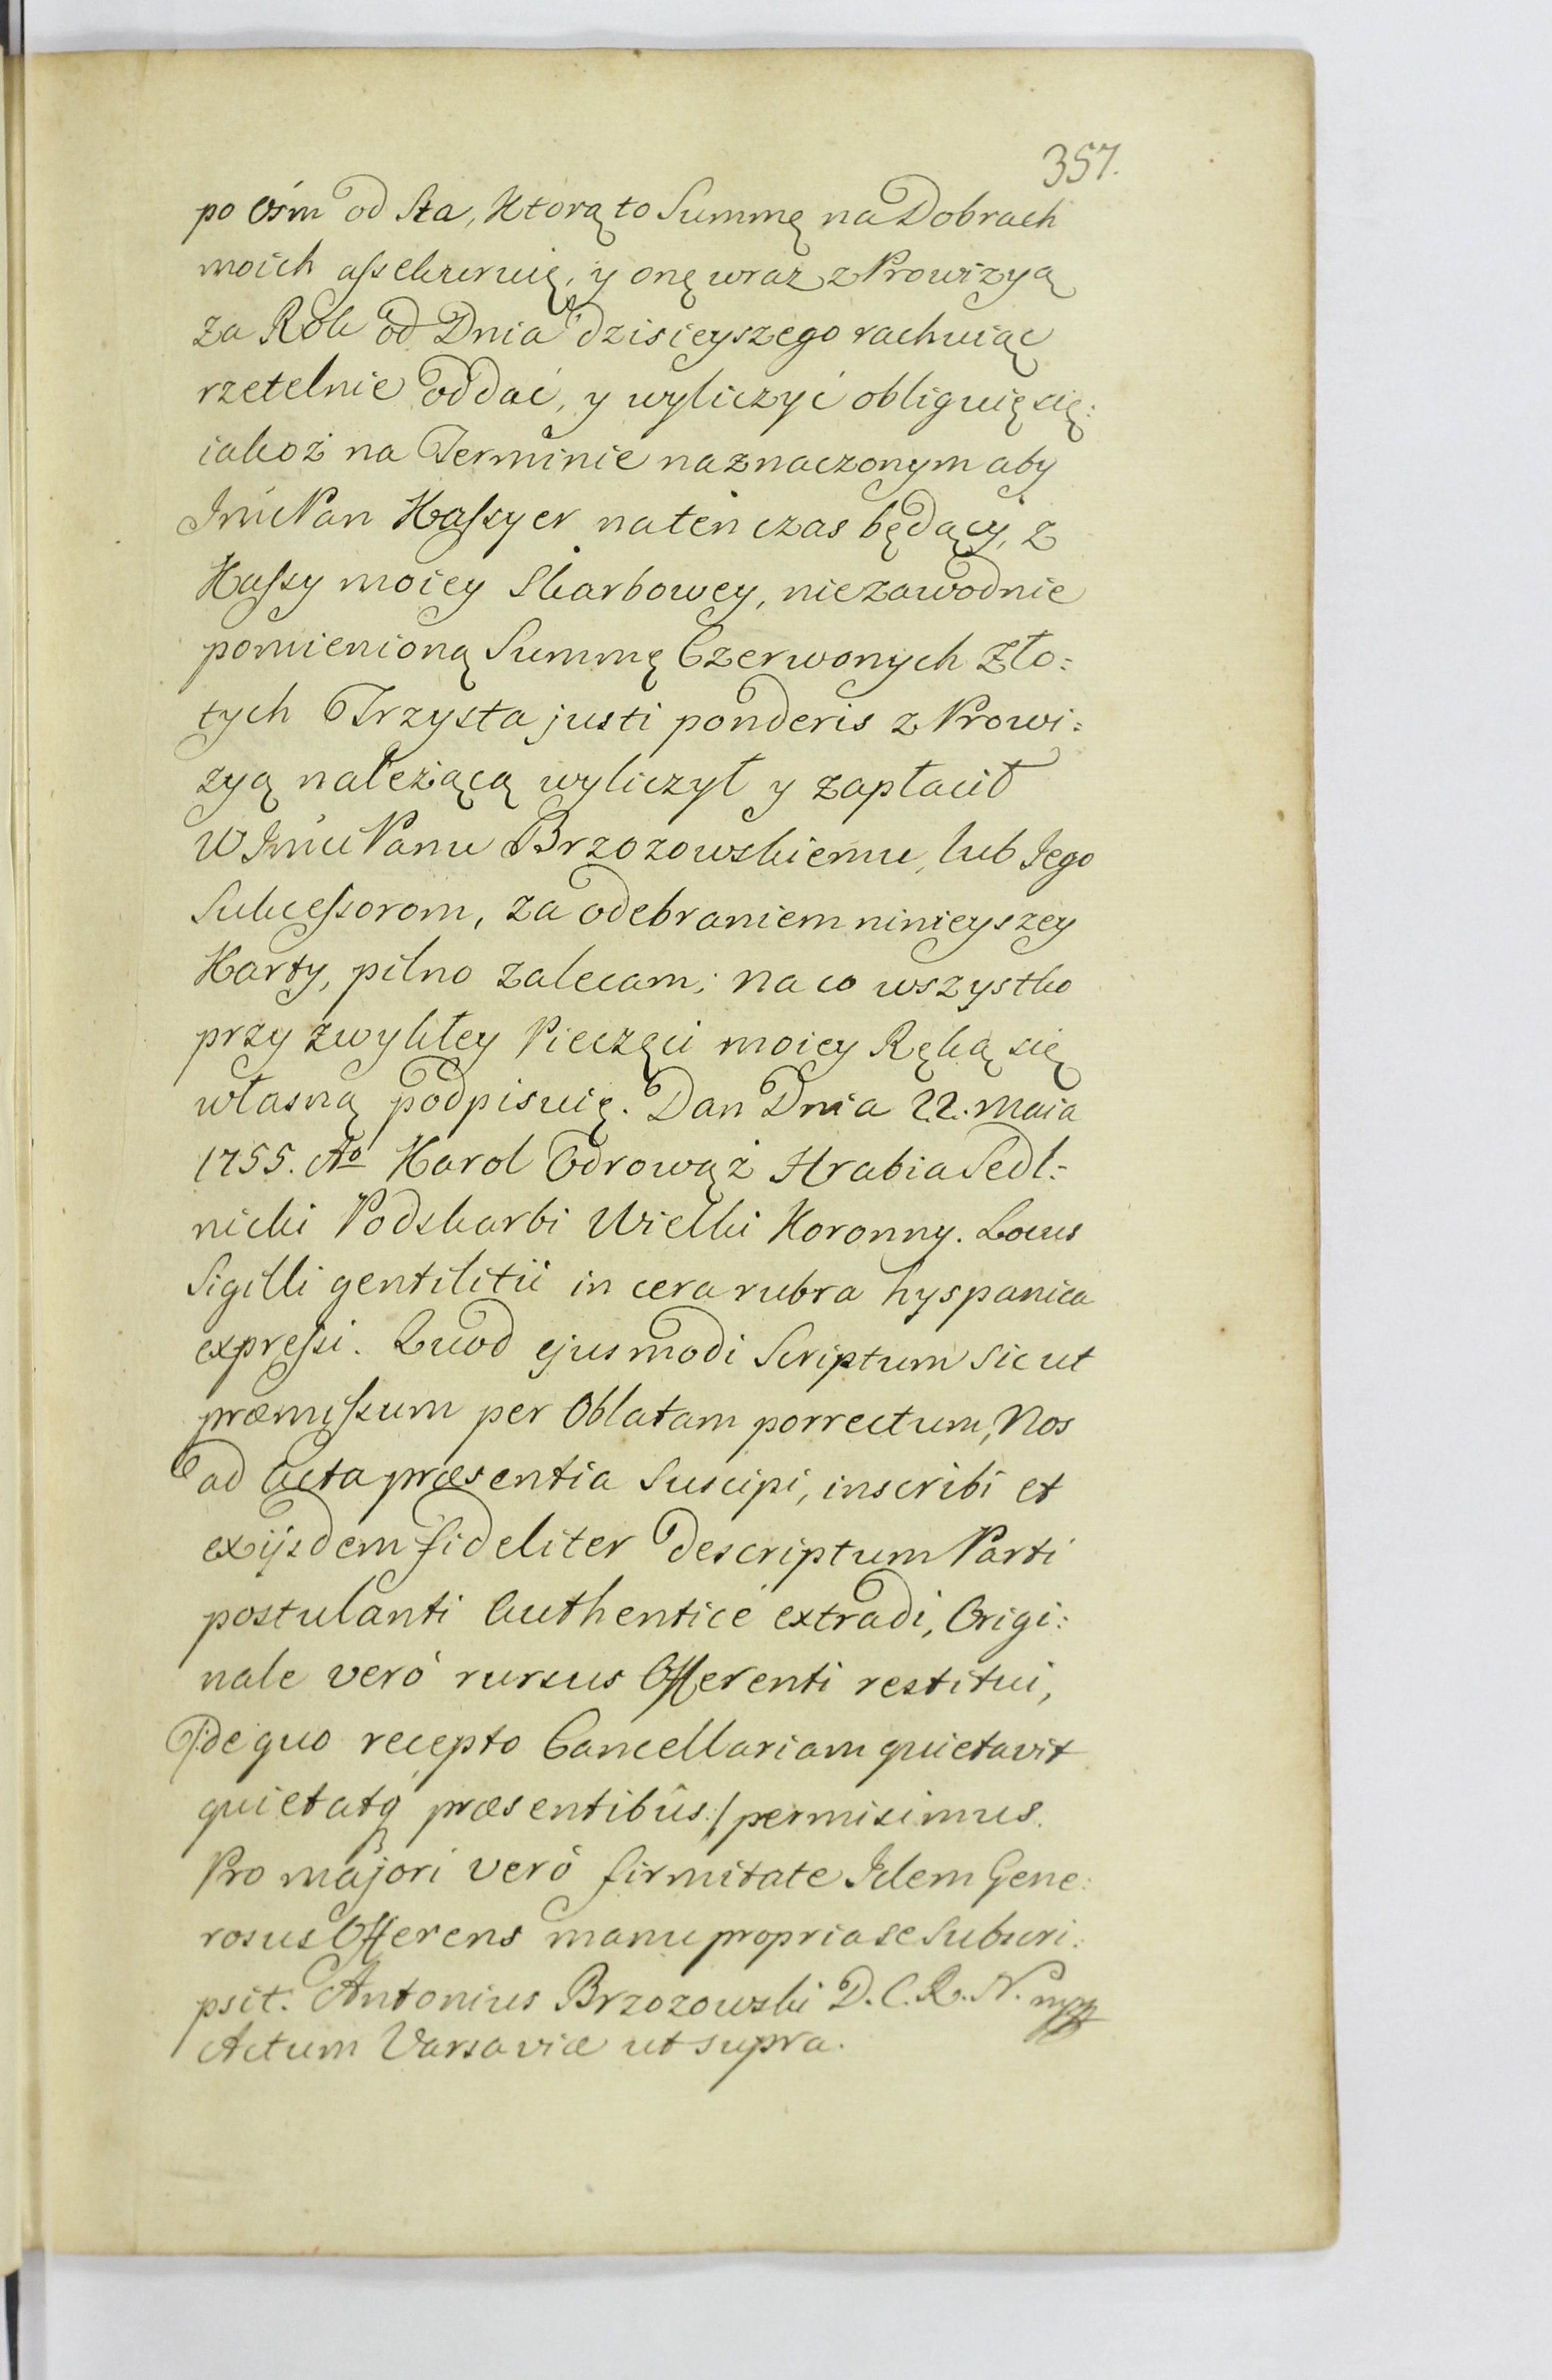 357.
po Ośm od Sta, Ktorą to Summę na Dobrach
moich assekuruię, y onę wraz z Prowizyą
za Rok od Dnia dzisieyszego rachuiąc
rzetelnie oddać, y wyliczyć obliguię się:
iakoż na Terminie naznaczonym aby
Jmć Pan Kassyer na ten czas będący, z
Kassy moiey Skarbowey, niezawodnie
pomienioną Summę Czerwonych Zło:
tych Trzysta justi ponderis z Prowi:
zyą należącą wyliczył y zapłacił
W Jmću Panu Brzozowskiemu, lub Jego
Sukcessorom, za odebraniem ninieyszey
Karty, pilno zalecam; na co wszystko
przy zwykłey Pieczęci moiey Ręką się
własną podpisuię. Dan Dnia 22. Maia
1755. Ao Karol Odrowąż Hrabia Sedl:
nicki Podskarbi Wielki Koronny. Locus
Sigilli gentilitii in cera rubra hyspanica
expressi. Quod ejusmodi Scriptum sicut
præmissum per Oblatam porrectum, Nos
ad Acta præsentia Suscipi, inscribi et
ex ijsdem fideliter descriptum Parti
postulanti Authenticè extradi, Origi:
nale verò rursus Offerenti restitui,
/:de quo recepto Cancellariam quietavit
quietatq præsentibûs:/ permisimus.
Pro majori verò firmitate Idem Gene:
rosus Offerens manu propria se Subscri:
psit. Antonius Brzozowski D. C. R. N. mpp
Actum Varsaviæ ut supra.